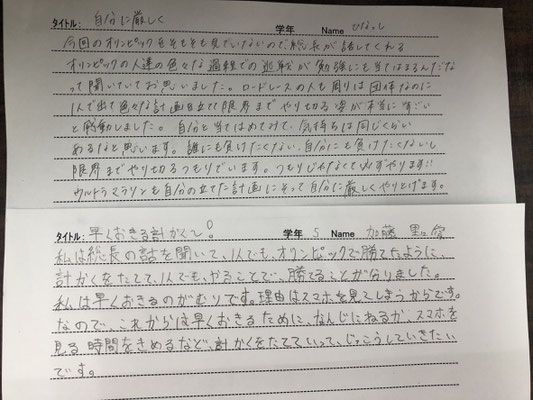 タイトル: 自分に厳しく 学年 Name ひなっし
今回のオリンピックをそもそも見ていないので総長が話してくれる
オリンピックの人達の色々な過程での挑戦が勉強にも当てはまるんだな
って聞いていてお思いました。ロードレースの人も周りは団体なのに
1人で出て色々な計画を立てて限界までやり切る姿が本当にすごい
と感動しました。自分と当てはめてみて、気持ちは同じくらい
あるなと思います。誰にも負けたくない、自分にも負けたくないし
限界までやり切るつもりでいます。つもりじゃなくて必ずやります!!
ウルトラマラソンも自分の立てた計画にそって自分に厳しくやりとげます。
タイトル: 早くおきる計かく〜! 学年 5 Name 加藤
私は総長の話を聞いて、1人でも、オリンピックで勝てたように、
計かくをたてて、1人でも、やることで、勝てることが分りました。
私は早くおきるのがむりです。理由はスマホを見てしまうからです。
なので、これからは早くおきるために、なんじにねるか、スマホを
見る時間をきめるなど、計かくをたてていって、じっこうしていきたい
です。